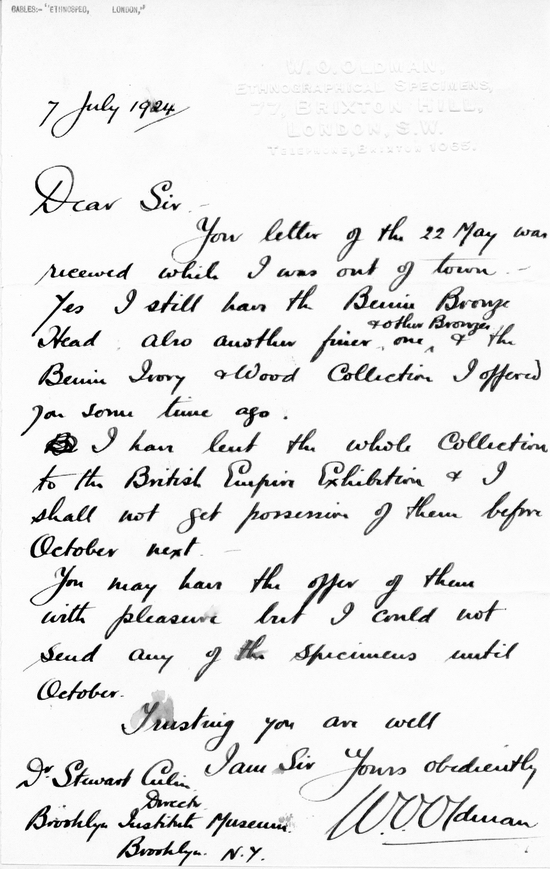 CABLES:- "ETHNOSPEC, LONDON,"
W. O. OLDMAN,
ETHNOGRAPHICAL SPECIMENS,
77, BRIXTON HILL,
LONDON, S.W.
TELEPHONE, BRIXTON 1065.
7 July 1924
Dear Sir -
Your letter of the 22 May was
received while I was out of town. -
Yes I still have the Benin Bronze
& other Bronzes
Head also another finer one, & the
Benin Ivory & Wood Collection I offered
you some time ago.
I have lent the whole Collection
to the British Empire Exhibition & I
shall not get possession of them before
October next. -
You may have the offer of them
with pleasure but I could not
send any of the specimens until
October.
Trusting you are well
I am Sir Yours obediently
W.O. Oldman
Dr Stewart Culin
Direct.
Brooklyn Institute Museum.
Brooklyn. N.Y.